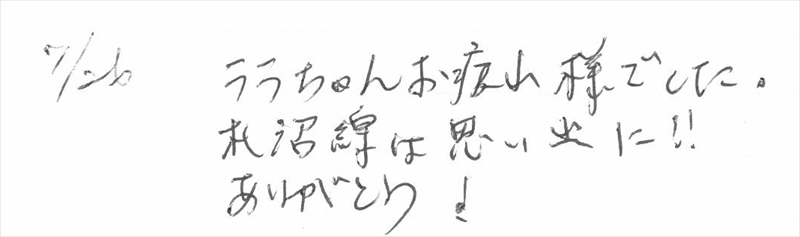 7/26 ララちゃんお疲れ様でした。
札沼線は思い出に!!
ありがとう!